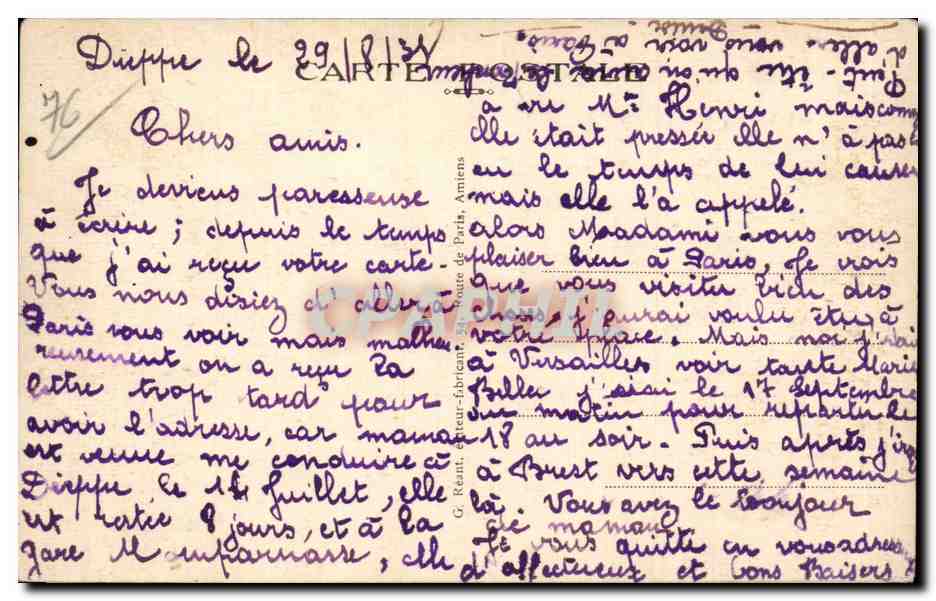 Dieppe le 29/8/38
CARTE POSTALE
76
Chers amis.
Je deviens paresseuse
à écrire ; depuis le temps
que j'ai reçu votre carte.
Vous nous disiez d'aller à
Paris vous voir mais malheu
reusement on a reçu la
lettre trop tard pour
avoir l'adresse, car maman
est venue me conduire à
Dieppe le 14 Juillet, elle
est restée 8 jours, et à la
gare Montparnasse, elle
G. Réant, éditeur-fabricant, 34, Route de Paris, Amiens
CPAPHIL
à vu Mme Henri mais comme
elle était pressée elle n'à pas
eu le temps de lui causer
mais elle l'à appelé.
alors Maadami vous vous
plaisez bien à Paris, Je vois
que vous visitez bien des
choses, j'aurai voulu être à
votre place. Mais moi j'irai
à Versailles voir tante Marie
Biller j'irai le 17 Septembre
au matin pour repartir le
18 au soir. Puis après j'irai
à Brest vers cette semaine
là. Vous avez le bonjour
de maman
Je vous quitte en vous adress
d'affectueux et bons Baisers
Peut-être qu'on
d'aller vous voir à Paris.
Denise